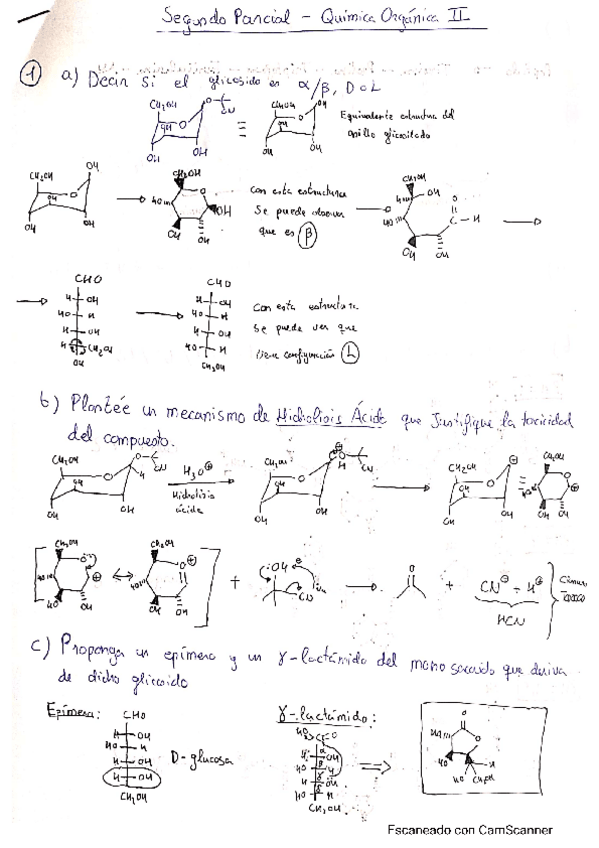 Segundo Parcial - Química Orgánica II
1 a) Decir si el glicosido es α/β, D o L
CH2OH O CN OH OH OH ≡ CH2OH OH O OH OH OH
Equivalente estructura del
anillo glicosilado
CH2OH OH O OH OH OH
CH2OH O HO OH OH OH
Con esta estructura
se puede observar
que es β
CH2OH OH O HO C - H OH OH
CHO
H OH
HO H
H OH
H CH2OH
OH
CHO
H OH
HO H
H OH
HO H
CH2OH
Con esta estructura
se puede ver que
tiene configuración L
b) Plantée un mecanismo de Hidrolisis Ácida que Justifique la toxicidad
del compuesto.
CH2OH O CN H OH OH OH
H3O⊕
Hidrolisis
ácida
CH2OH O H CN OH OH OH
CH2OH O OH OH OH ≡ CH2OH O HO OH OH
CH2OH O HO HO OH ↔ CH2OH O HO OH OH + OH CN → + CN⊖ + H⊕
HCN
c) Proponga un epímero y un γ-lactámido del monosacarido que deriva
de dicho glicosido
Epímero:
CHO
H OH
HO H
H OH
H OH
CH2OH
D-glucosa
γ-lactámido:
CH2OH
O HO O HO CH2OH H
Escaneado con CamScanner